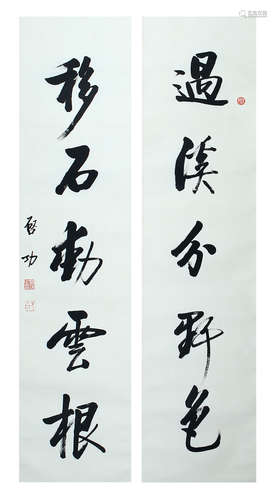 過溪分野色
移石動雲根
启功